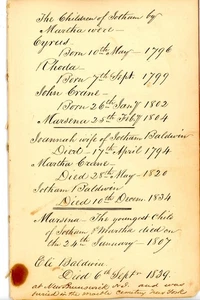 The Children of Jotham by
Martha were —
Cyrus
Born 10th May — 1796
Rhoda —
Born 7th Sept. 1799
John Crane —
Born 26th Jany 1802
Marsena 24th Feby 1804
Joannah wife of Jotham Baldwin
Died — 17th April 1794
Martha Crane —
Died 28th May — 1820
Jotham Baldwin
Died 10th Decem. 1834
Marsina — The youngest Child
of Jotham & Martha died on
the 24th January — 1807
E. A. Baldwin
Died 6th Septr 1839.
at New Brunswick N.J. and was
buried in the marble Cemetery New York